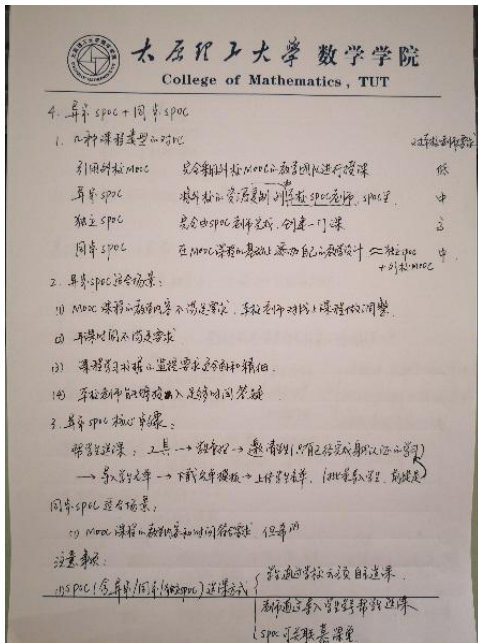 太原理工大学 数学学院
College of Mathematics, TUT
4. 异步SPOC + 同步SPOC
1. 几种课程类型的对比 对本校老师要求
引用外校MOOC 完全采用外校MOOC的教学团队进行授课 低
异步SPOC 将外校的资源复制到本校SPOC老师, SPOC里 中
独立SPOC 完全由SPOC老师完成,创建一门课 高
同步SPOC 在MOOC课程的基础上添加自己的教学设计 ≈ 独立SPOC 中
+ 外校MOOC
2. 异步SPOC适合场景:
(1) MOOC课程的教学内容不满足要求,本校老师对线上课程做调整
(2) 开课时间不满足要求
(3) 课程学习数据的监控要求全面和精细.
(4) 本校老师能够投入足够时间答疑
3. 异步SPOC核心步骤:
帮学生选课: 工具 → 邀请到(只有已经完成身份认证的学习)
→ 导入学生名单 → 下载名单模板 → 上传学生名单. (批量导入学生,前提是
同步SPOC适合场景:
(1) MOOC课程的教学内容和时间符合要求 但希望
注意事项:
(1) SPOC(含异步/同步/独立SPOC)选课方式
学生通过学校云项自主选课.
老师通过导入学生学号帮助选课
SPOC可关联慕课堂